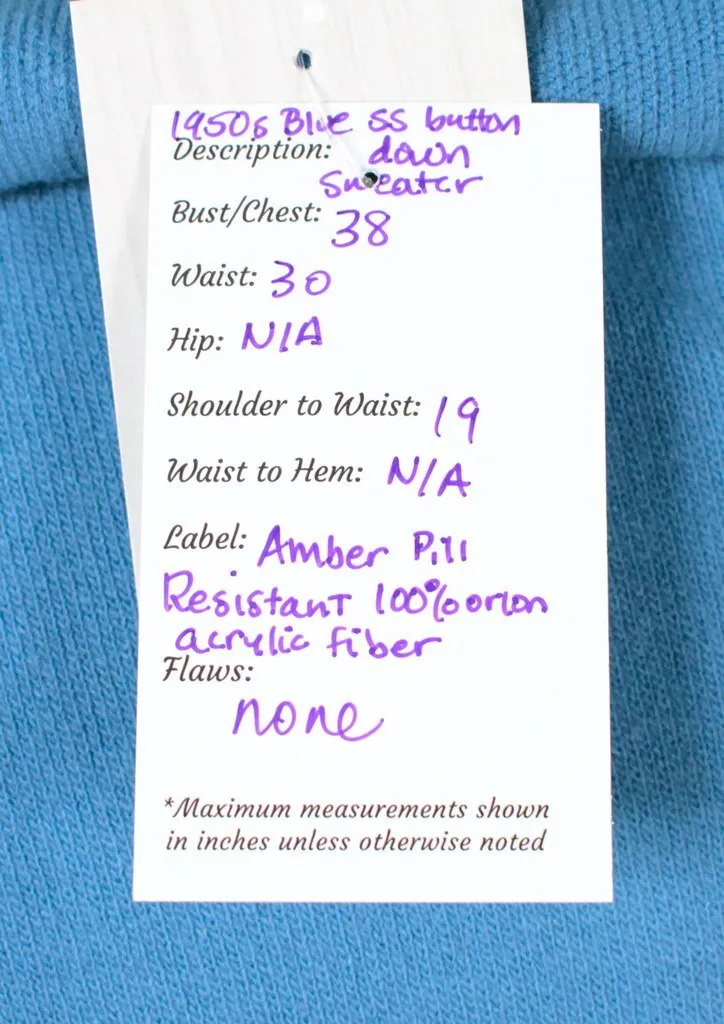 1950s Blue SS button
Description: down
Sweater
Bust/Chest: 38
Waist: 30
Hip: N/A
Shoulder to Waist: 19
Waist to Hem: N/A
Label: Amber Pill
Resistant 100% orlon
acrylic fiber
Flaws:
none
*Maximum measurements shown
in inches unless otherwise noted